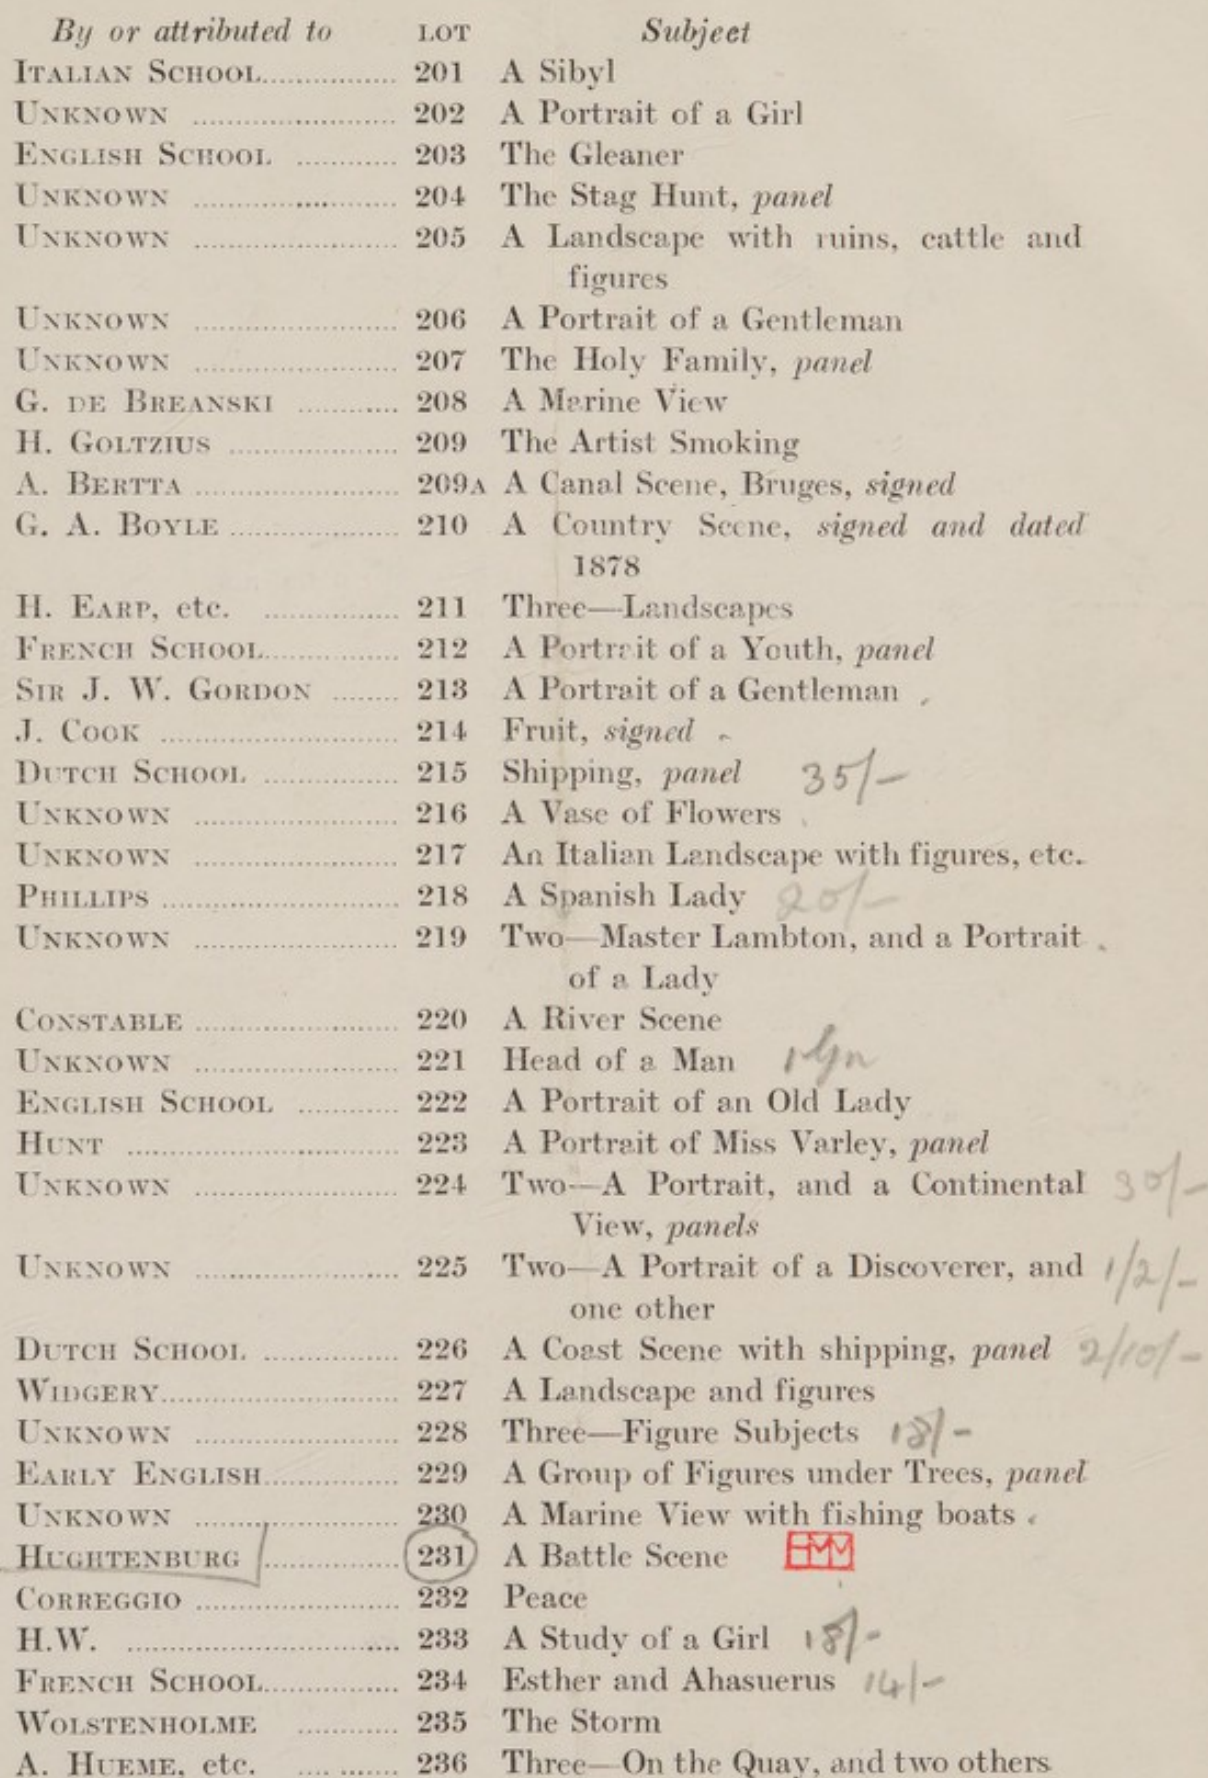 By or attributed to LOT Subject
ITALIAN SCHOOL................ 201 A Sibyl
UNKNOWN ........................ 202 A Portrait of a Girl
ENGLISH SCHOOL ............ 203 The Gleaner
UNKNOWN ........................ 204 The Stag Hunt, panel
UNKNOWN ........................ 205 A Landscape with ruins, cattle and
figures
UNKNOWN ........................ 206 A Portrait of a Gentleman
UNKNOWN ........................ 207 The Holy Family, panel
G. DE BREANSKI ............ 208 A Marine View
H. GOLTZIUS .................... 209 The Artist Smoking
A. BERTTA ........................ 209A A Canal Scene, Bruges, signed
G. A. BOYLE .................... 210 A Country Scene, signed and dated
1878
H. EARP, etc. ................ 211 Three—Landscapes
FRENCH SCHOOL................ 212 A Portrait of a Youth, panel
SIR J. W. GORDON ........ 213 A Portrait of a Gentleman
J. COOK ............................ 214 Fruit, signed
DUTCH SCHOOL ................ 215 Shipping, panel 35/-
UNKNOWN ........................ 216 A Vase of Flowers
UNKNOWN ........................ 217 An Italian Landscape with figures, etc.
PHILLIPS ............................ 218 A Spanish Lady 20/-
UNKNOWN ........................ 219 Two—Master Lambton, and a Portrait
of a Lady
CONSTABLE ........................ 220 A River Scene
UNKNOWN ........................ 221 Head of a Man 1 Gn
ENGLISH SCHOOL ............ 222 A Portrait of an Old Lady
HUNT ................................ 223 A Portrait of Miss Varley, panel
UNKNOWN ........................ 224 Two—A Portrait, and a Continental 30/-
View, panels
UNKNOWN ........................ 225 Two—A Portrait of a Discoverer, and 1/2/-
one other
DUTCH SCHOOL ................ 226 A Coast Scene with shipping, panel 2/10/-
WIDGERY............................ 227 A Landscape and figures
UNKNOWN ........................ 228 Three—Figure Subjects 18/-
EARLY ENGLISH................ 229 A Group of Figures under Trees, panel
UNKNOWN ........................ 230 A Marine View with fishing boats
HUGHTENBURG ................ 231 A Battle Scene
CORREGGIO ........................ 232 Peace
H.W. ................................ 233 A Study of a Girl 18/-
FRENCH SCHOOL................ 234 Esther and Ahasuerus 14/-
WOLSTENHOLME ............ 235 The Storm
A. HUEME, etc. ............ 236 Three—On the Quay, and two others